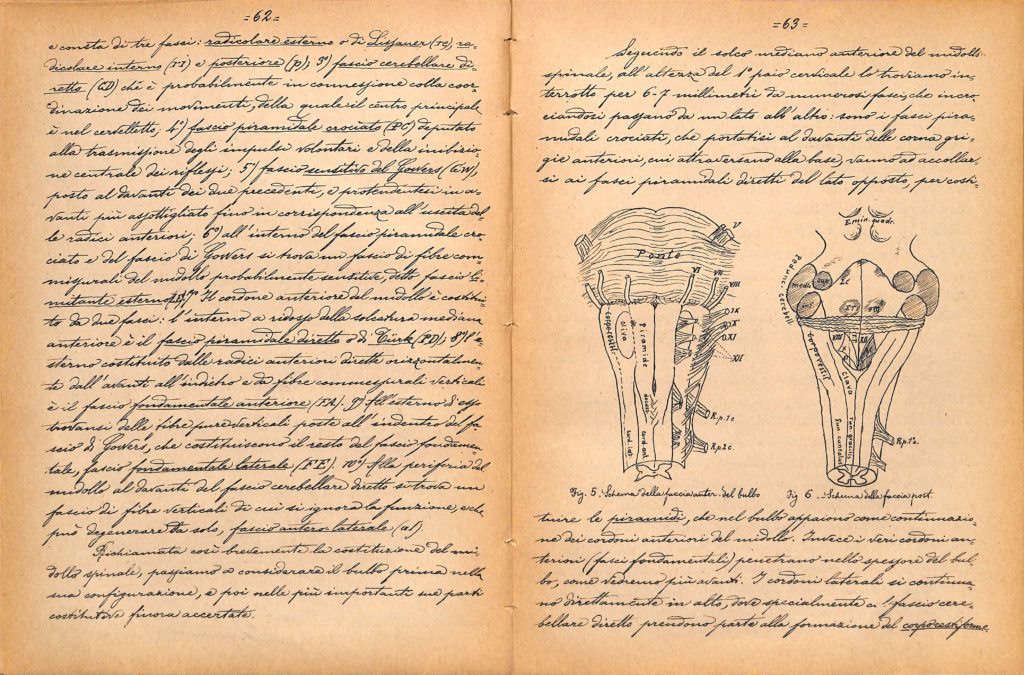 =62=
e consta di tre fasci: radicolare esterno o di Lissauer (re), ra-
dicolare interno (rI) e posteriore (p); 3º) fascio cerebellare di-
retto (CD) che è probabilmente in connessione colla coor-
dinazione dei movimenti, della quale il centro principale
è nel cervelletto; 4º) fascio piramidale crociato (PC) deputato
alla trasmissione degli impulsi volontari e della inibizio-
ne centrale dei riflessi; 5º) fascio sensitivo del Gowers (GW),
posto al davanti dei due precedenti, e protendentesi in a-
vanti più assottigliato fino in corrispondenza all'uscita del-
le radici anteriori; 6º) all'interno del fascio piramidale cro-
ciato e del fascio di Gowers si trova un fascio di fibre com-
missurali del midollo probabilmente sensitive, detto fascio li-
mitante esterno 7º Il cordone anteriore del midollo è costitui-
to da due fasci: l'interno a ridosso della solcatura mediana
anteriore è il fascio piramidale diretto o di Türk (PD); 8º) l'e-
sterno costituito dalle radici anteriori dirette orizzontalmen-
te dall'avanti all'indietro e da fibre commessurali verticali
è il fascio fondamentale anteriore (FA). 9º) All'esterno di esso
trovansi delle fibre pure verticali poste all'indentro del fa-
scio di Gowers, che costituiscono il resto del fascio fondamen-
tale, fascio fondamentale laterale (FE). 10º) Alla periferia del
midollo al davanti del fascio cerebellare diretto si trova un
fascio di fibre verticali di cui si ignora la funzione, e che
può degenerare da solo, fascio antero-laterale (al).
Richiamata così brevemente la costituzione del mi-
dollo spinale, passiamo a considerare il bulbo prima nella
sua configurazione, e poi nelle più importanti sue parti
costitutive finora accertate.
=63=
Seguendo il solco mediano anteriore del midollo
spinale, all'altezza del 1º paio cervicale lo troviamo in-
terrotto per 6-7 millimetri da numerosi fasci, che incro-
ciandosi passano da un lato all'altro: sono i fasci pira-
midali crociati, che portatisi al davanti delle corna gri-
gie anteriori, cui attraversano alla base, vanno ad accollar-
si ai fasci piramidali diretti del lato opposto, per costi-
Ponte
V
VI
VII
VIII
IX
X
XI
XII
corpo restif.
oliva
Piramide
R.p.1c
R.p.2c.
Fig. 5. Schema della faccia anter. del bulbo
Emin. quadr.
Peduncoli cerebell.
medi
sup
inf.
Corpo restif.
Clava
Fun. cuneatus
Fun. gracilis
R.p.1a.
Fig 6. Schema della faccia post
tuire le piramidi, che nel bulbo appaiono come continuazio-
ne dei cordoni anteriori del midollo. Invece i veri cordoni an-
teriori (fasci fondamentali) penetrano nello spessore del bul-
bo, come vedremo più avanti. I cordoni laterali si continua-
no direttamente in alto, dove specialmente col fascio cere-
bellare diretto prendono parte alla formazione del corpo restiforme